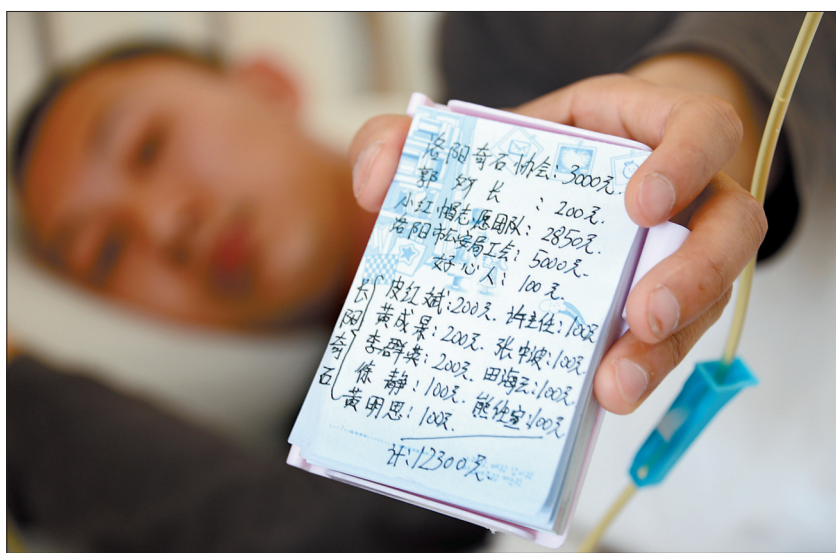 洛阳奇石协会：3000元.
郭 处 长 ：200元.
小红帽志愿团队：2850元.
洛阳市公安局工会：5000元.
好心人：100元.
长阳奇石
皮红斌：200元. 许主任：100元
黄成杲：200元. 张中波：100元.
李群英：200元. 田海云：100元.
徐 静：100元. 熊仕宝：100元
黄明思：100元.
计：12300元.